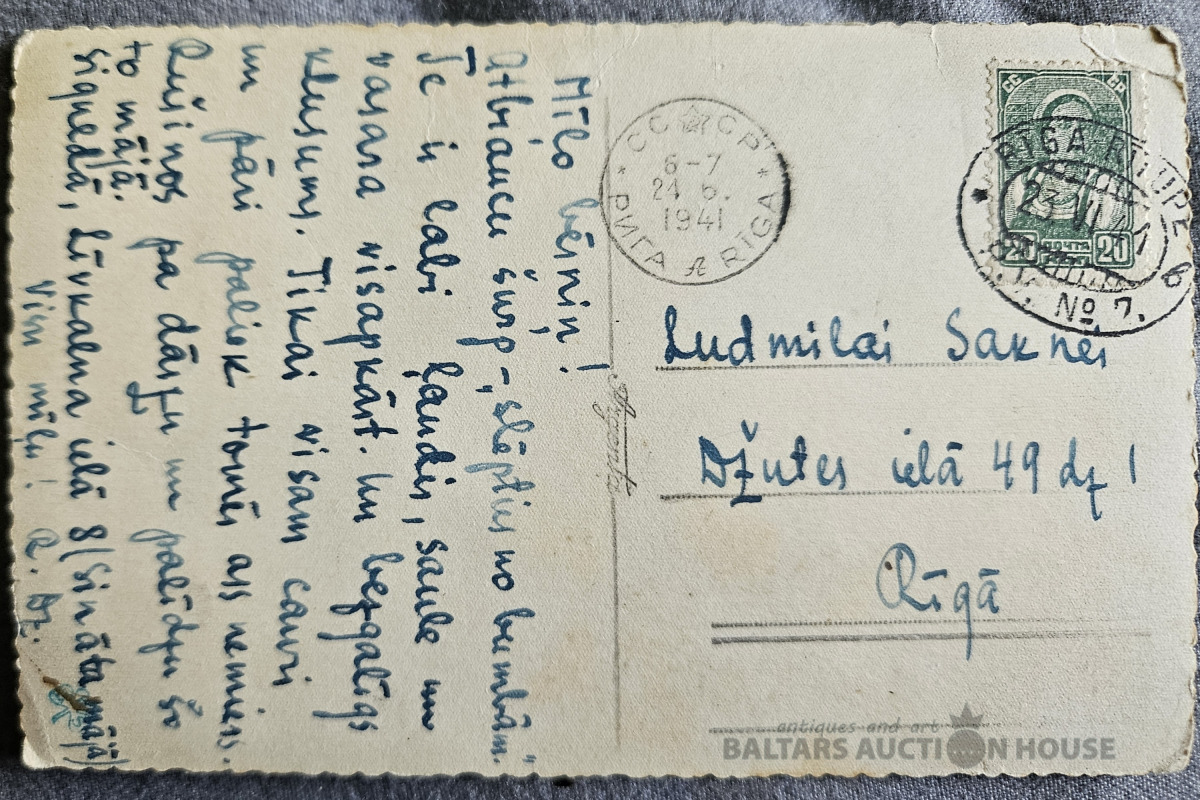 Mīļo bērniņ!
Atbraucu šurp - „slēpties no bumbām."
Te ir labi ļaudis, saule un
vasara visapkārt. Un bezgalīgs
klusums. Tikai visam cauri
un pāri paliek tomēr ass nemiers.
Rušinos pa dārzu un palīdzu šo
to mājā.
Siguldā, Līvkalna ielā 8
Viņ mīļu!
СС СР
6-7
24 6.
1941
РИГА RĪGA
СС СР
20 ПОЧТА 20
RĪGA
23 VI 41
b
No 7.
Ludmilai Saknei
Džutes ielā 49 dz 1
Rīgā
antiques and art
BALTARS AUCTION HOUSE